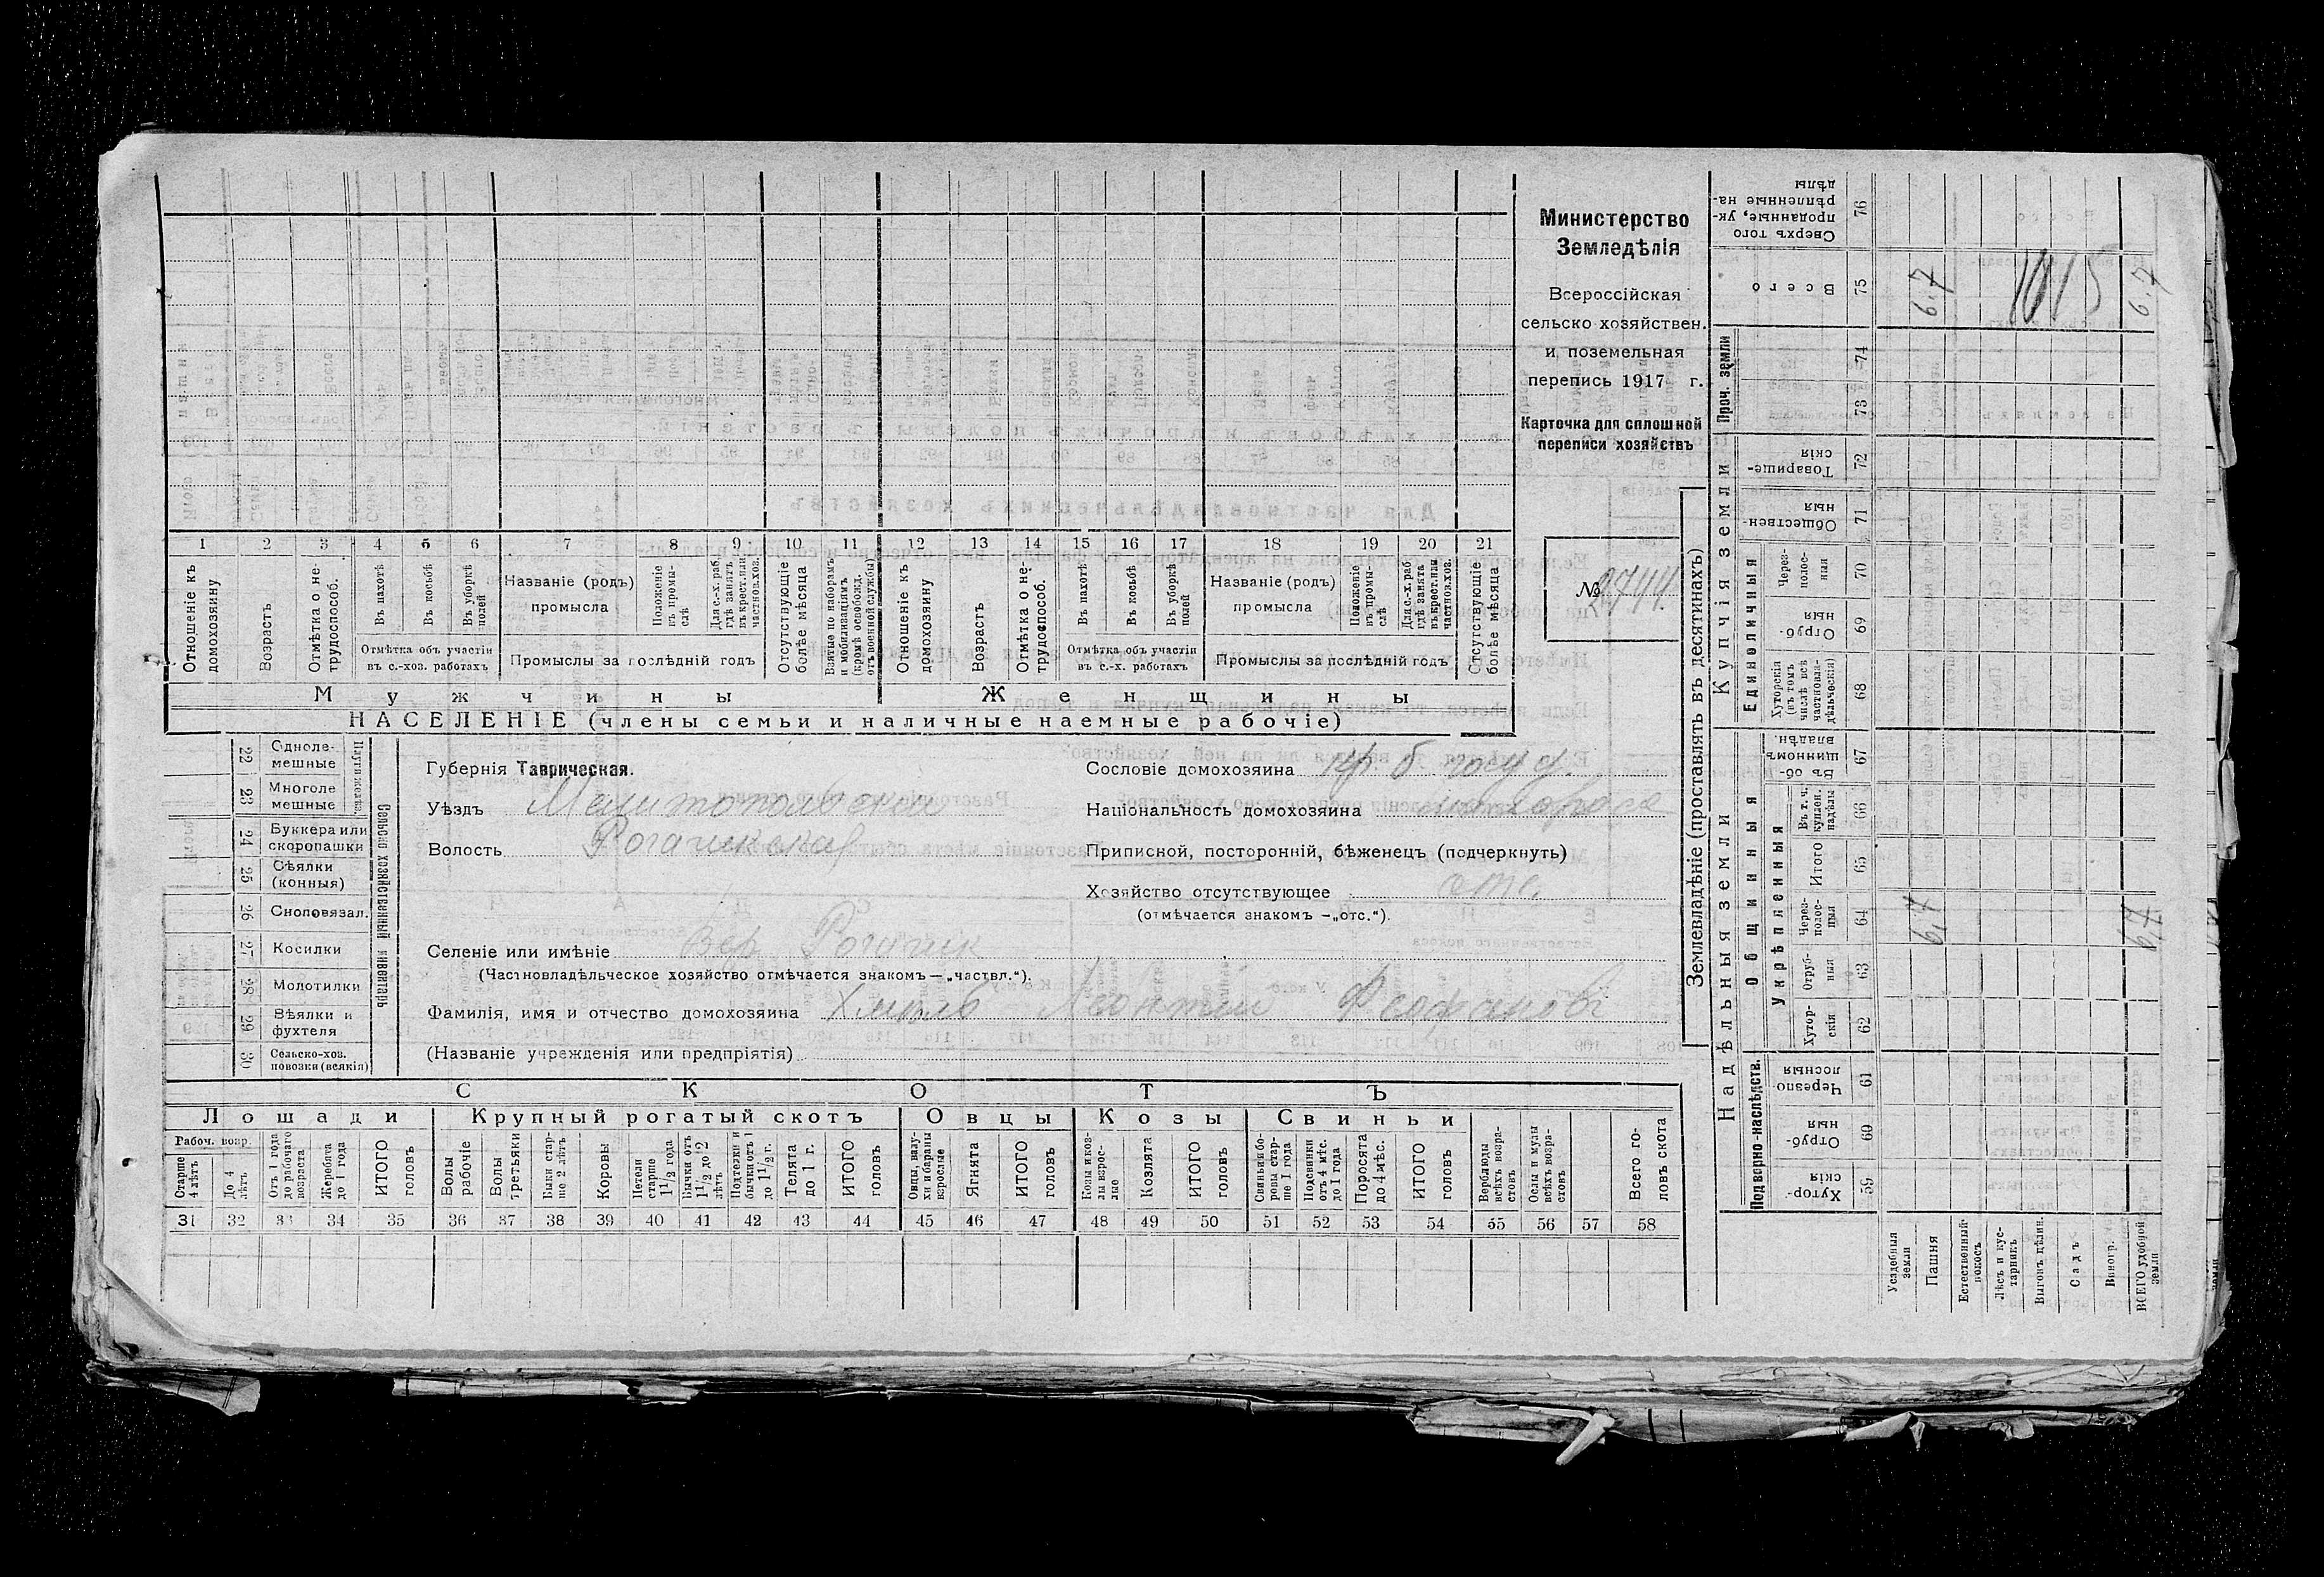 Министерство
Земледѣлія
Всероссійская
сельско хозяйствен.
и поземельная
перепись 1917 г.
Карточка для сплошной
переписи хозяйствъ
№ 2744
1 2 3 4 5 6 7 8 9 10 11 12 13 14 15 16 17 18 19 20 21
Отношеніе къ домохозяину
Возрастъ
Отмѣтка о не-трудоспособ.
Въ пахотѣ
Въ косьбѣ
Въ уборкѣ полей
Отмѣтка объ участіи
въ с.-хоз. работахъ
Названіе (родъ)
промысла
Положеніе въ промы-слѣ
Для с.-х. раб. гдѣ занятъ въ крест. или частнов. хоз.
Промыслы за послѣдній годъ
Отсутствующіе болѣе мѣсяца
Взятые по наборамъ и мобилизаціямъ (кромѣ освобожд. отъ военной службы)
Отношеніе къ домохозяину
Возрастъ
Отмѣтка о не-трудоспособ.
Въ пахотѣ
Въ косьбѣ
Въ уборкѣ полей
Отмѣтка объ участіи
въ с.-х. работахъ
Названіе (родъ)
промысла
Положеніе въ промы-слѣ
Для с.-х. раб. гдѣ занята въ крест. или частнов. хоз.
Промыслы за послѣдній годъ
Отсутствующіе болѣе мѣсяца
Мужчины Женщины
НАСЕЛЕНІЕ (члены семьи и наличные наемные рабочіе)
22 Одноле-мешные
23 Многоле мешные
24 Буккера или скоропашки
25 Сѣялки (конныя)
26 Сноповязал.
27 Косилки
28 Молотилки
29 Вѣялки и фухтеля
30 Сельско-хоз. повозки (всякія)
Сельско хозяйственный инвентарь
Губернія Таврическая.
Уѣздъ Мелитопольскій
Волость Рогачикская
Селеніе или имѣніе Вер. Рогачик
(Частновладѣльческое хозяйство отмѣчается знакомъ — „частвл.“).
Сословіе домохозяина кр. б.
Національность домохозяина малоросс
Приписной, посторонній, бѣженецъ (подчеркнуть)
Хозяйство отсутствующее отс.
(отмѣчается знакомъ — „отс.“).
Фамилія, имя и отчество домохозяина Хмѣль Леонтій
(Названіе учрежденія или предпріятія)
СКОТЪ
Лошади Крупный рогатый скотъ Овцы Козы Свиньи
Рабоч. возр.
Старше 4 лѣтъ
До 4 лѣтъ
Отъ 1 года до рабочаго возраста
Жеребята до 1 года
ИТОГО головъ
Волы рабочіе
Волы третьяки
Быки стар-ше 2 лѣтъ
Коровы
Нетели старше 1 1/2 года
Бычки отъ 1 1/2 до 2 лѣтъ
Подтелки и бычки отъ 1 до 1 1/2 г.
Телята до 1 г.
ИТОГО головъ
Овцы, валу-хи и бараны взрослые
Ягнята
ИТОГО головъ
Козы и коз-лы взрос-лые
Козлята
ИТОГО головъ
Свиньи и бо-ровы стар-ше 1 года
Подсвинки отъ 4 мѣс. до 1 года
Поросята до 4 мѣс.
ИТОГО головъ
Верблюды всѣхъ возра-стовъ
Ослы и мулы всѣхъ возра-стовъ
Всего го-ловъ скота
31 32 33 34 35 36 37 38 39 40 41 42 43 44 45 46 47 48 49 50 51 52 53 54 55 56 57 58
Землевладѣніе (проставлять въ десятинахъ)
Надѣльныя земли Купчія земли Проч. земли
Подворно-наслѣдств.
Общинныя
Укрѣпленныя
Единоличныя
Хутор-скія 59
Отруб-ныя 60
Черезпо лосныя 61
Хутор-скія 62
Отруб-ныя 63
Через-полос-ныя 64 6,7 6,7
Итого 65
Въ т. ч. куплен. надѣлы 66
Въ об-щинномъ владѣн. 67
Хуторскія (въ томъ числѣ всѣ частновла-дѣльческія) 68
Отруб-ныя 69
Через-полос-ныя 70
Обществен-ныя 71
Товарище-скія 72
73
74
Всего 75 6,7 6,7
Сверхъ того проданные, ук-рѣпленные на-дѣлы 76
Усадебныя земли
Пашня
Естественный покосъ
Лѣсъ и кус-тарникъ
Выгонъ цѣлин.
Садъ
Виногр.
ВСЕГО удобной земли